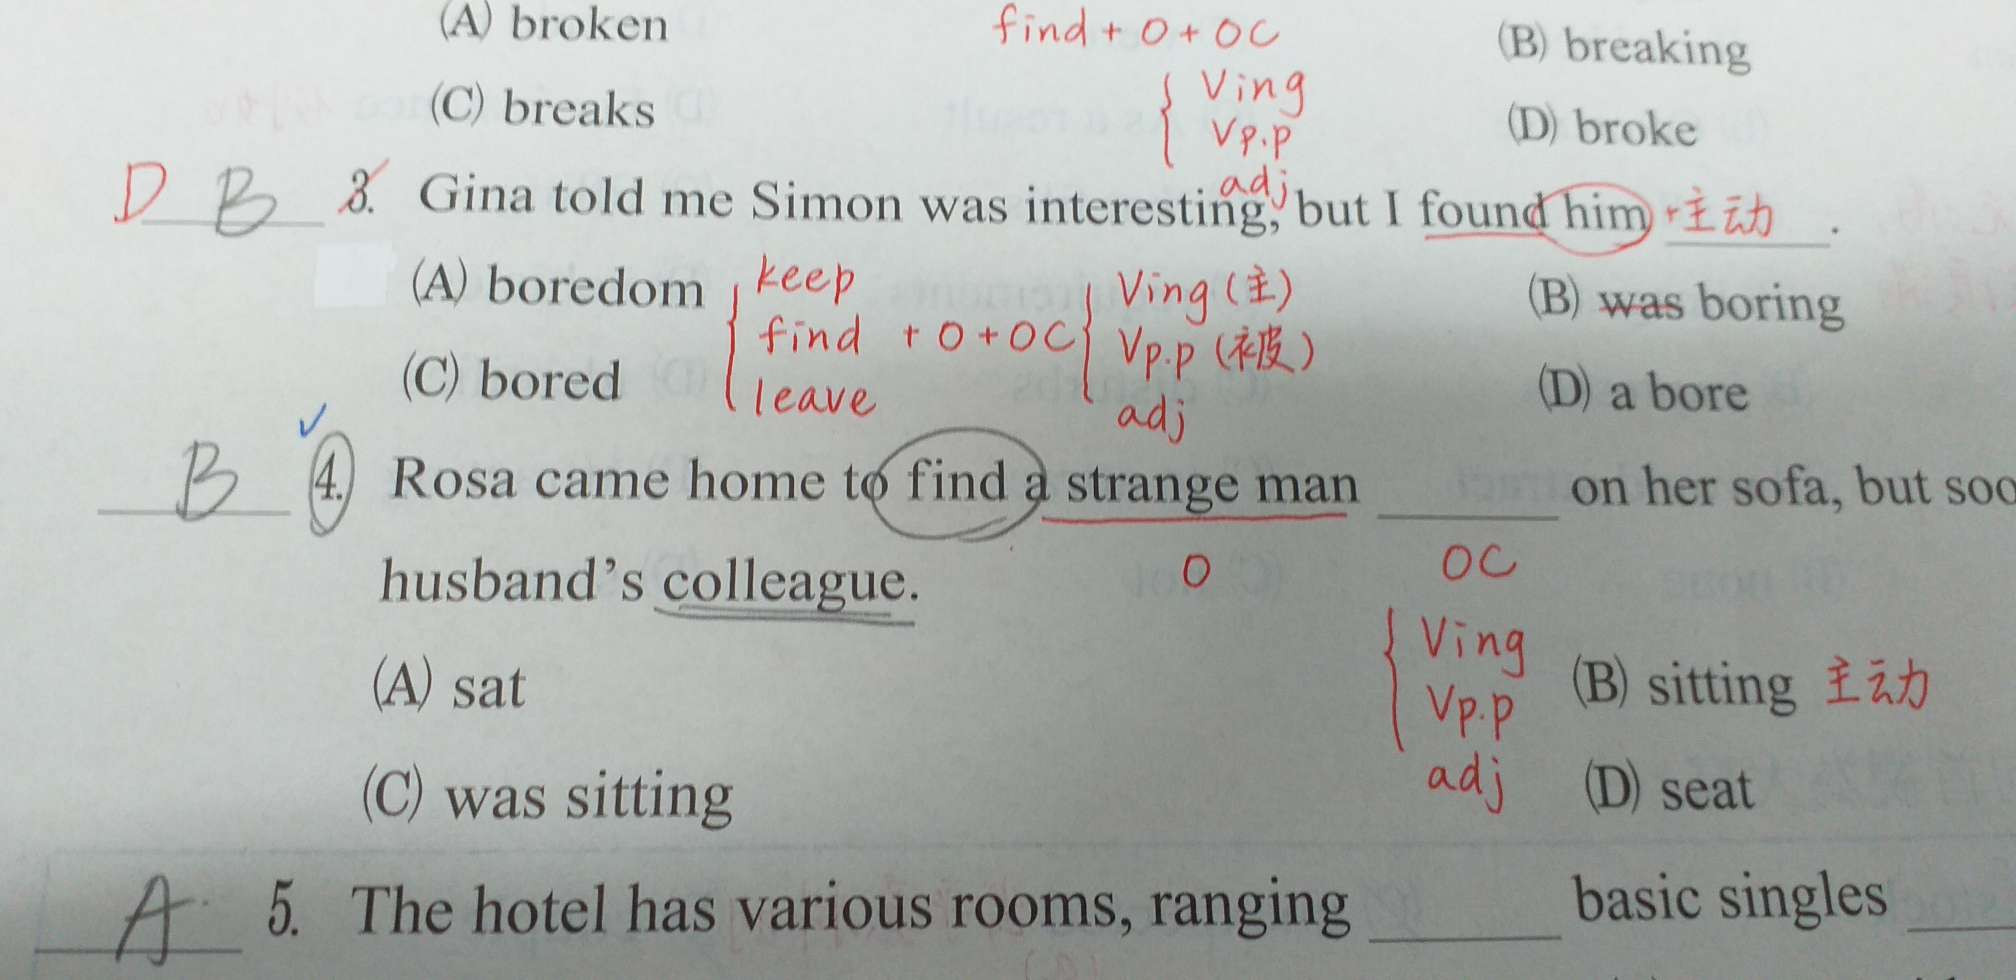 (A) broken find + O + OC (B) breaking
(C) breaks { Ving (D) broke
Vp.p
adj
D B 3. Gina told me Simon was interesting, but I found him +主动 .
(A) boredom (B) was boring
(C) bored (D) a bore
keep
find + O + OC
leave
{ Ving (主)
Vp.p (被)
adj
B 4. Rosa came home to find a strange man ______ on her sofa, but soo
O OC
husband's colleague.
{ Ving
Vp.p
adj
(A) sat (B) sitting 主动
(C) was sitting (D) seat
A 5. The hotel has various rooms, ranging ______ basic singles ______